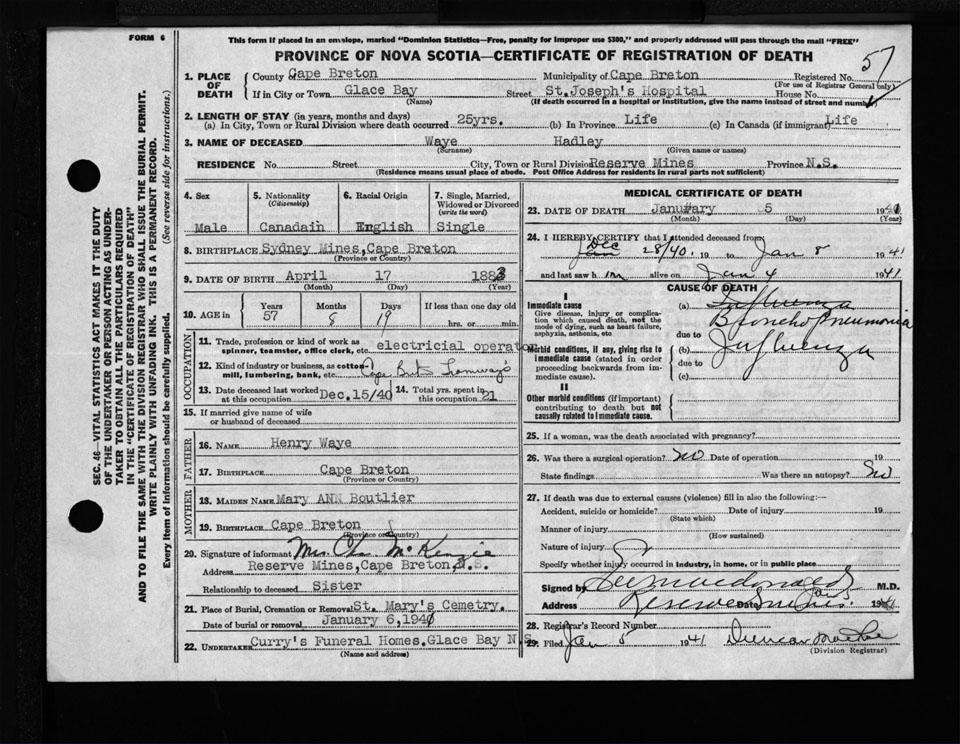 FORM 6
This form if placed in an envelope, marked "Dominion Statistics—Free, penalty for improper use $300," and properly addressed will pass through the mail "FREE"
PROVINCE OF NOVA SCOTIA—CERTIFICATE OF REGISTRATION OF DEATH
57
SEC. 46—VITAL STATISTICS ACT MAKES IT THE DUTY
OF THE UNDERTAKER OR PERSON ACTING AS UNDER-
TAKER TO OBTAIN ALL THE PARTICULARS REQUIRED
IN THE "CERTIFICATE OF REGISTRATION OF DEATH"
AND TO FILE THE SAME WITH THE DIVISION REGISTRAR WHO SHALL ISSUE THE BURIAL PERMIT.
WRITE PLAINLY WITH UNFADING INK. THIS IS A PERMANENT RECORD.
Every item of information should be carefully supplied. (See reverse side for instructions.)
1. PLACE OF DEATH
County Cape Breton Municipality of Cape Breton Registered No.
(For use of Registrar General only)
If in City or Town Glace Bay Street St.Joseph's Hospital House No.
(Name) (If death occurred in a hospital or institution, give the name instead of street and number)
2. LENGTH OF STAY (in years, months and days)
(a) In City, Town or Rural Division where death occurred 25yrs. (b) In Province Life (c) In Canada (if immigrant) Life
3. NAME OF DECEASED Waye Hadley
(Surname) (Given name or names)
RESIDENCE No. Street City, Town or Rural Division Reserve Mines Province N.S.
(Residence means usual place of abode. Post Office Address for residents in rural parts not sufficient)
4. Sex 5. Nationality (Citizenship) 6. Racial Origin 7. Single, Married, Widowed or Divorced (write the word)
Male Canadain English Single
8. BIRTHPLACE Sydney Mines,Cape Breton
(Province or Country)
9. DATE OF BIRTH April 17 1883
(Month) (Day) (Year)
10. AGE in Years Months Days If less than one day old
57 8 19 hrs. or min.
OCCUPATION
11. Trade, profession or kind of work as spinner, teamster, office clerk, etc. electricial operator
12. Kind of industry or business, as cotton-mill, lumbering, bank, etc. Cape Bret Tramways
13. Date deceased last worked at this occupation Dec.15/40 14. Total yrs. spent in this occupation 21
15. If married give name of wife or husband of deceased
FATHER
16. NAME Henry Waye
17. BIRTHPLACE Cape Breton
(Province or Country)
MOTHER
18. MAIDEN NAME Mary ANN Boutlier
19. BIRTHPLACE Cape Breton
(Province or Country)
20. Signature of informant Mrs. Chs McKenzie
Address Reserve Mines,Cape Breton,N.S.
Relationship to deceased Sister
21. Place of Burial, Cremation or Removal St. Mary's Cemetry.
Date of burial or removal January 6,1941
22. UNDERTAKER Curry's Funeral Homes,Glace Bay N.S.
(Name and address)
MEDICAL CERTIFICATE OF DEATH
23. DATE OF DEATH January 5 1941
(Month) (Day) (Year)
24. I HEREBY CERTIFY that I attended deceased from
Dec 28/40. 19 to Jan 8 1941
and last saw h im alive on Jan 4 1941
CAUSE OF DEATH
I
Immediate cause
Give disease, injury or complication which caused death, not the mode of dying, such as heart failure, asphyxia, asthenia, etc
Morbid conditions, if any, giving rise to immediate cause (stated in order proceeding backwards from immediate cause).
II
Other morbid conditions (if important) contributing to death but not causally related to immediate cause.
(a) Influenza
Broncho Pneumonia
due to
(b) Influenza
due to
(c)
25. If a woman, was the death associated with pregnancy?
26. Was there a surgical operation? No Date of operation 19
State findings Was there an autopsy? No
27. If death was due to external causes (violence) fill in also the following:—
Accident, suicide or homicide? Date of injury 19
(State which)
Manner of injury
(How sustained)
Nature of injury
Specify whether injury occurred in industry, in home, or in public place
Signed by Macdonald M.D.
Address Reserve Mines Date Jan 5. 1941
28. Registrar's Record Number
29. Filed Jan 5 1941 Duncan
(Division Registrar)